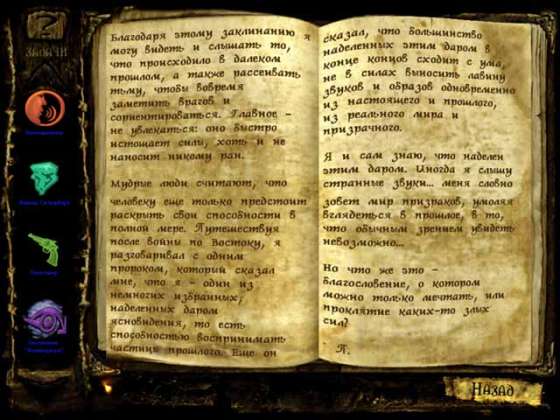 ЗАДАЧИ
Благодаря этому заклинанию я
могу видеть и слышать то,
что происходило в далеком
прошлом, а также рассеивать
тьму, чтобы вовремя
заметить врагов и
сориентироваться. Главное -
не увлекаться: оно быстро
истощает силы, хоть и не
наносит никому ран.
Мудрые люди считают, что
человеку еще только предстоит
раскрыть свои способности в
полной мере. Путешествуя
после войны по Востоку, я
разговаривал с одним
пророком, который сказал
мне, что я - один из
немногих избранных,
наделенных даром
ясновидения, то есть
способностью воспринимать
частицы прошлого. Еще он
сказал, что большинство
наделенных этим даром в
конце концов сходит с ума,
не в силах выносить лавину
звуков и образов одновременно
из настоящего и прошлого,
из реального мира и
призрачного.
Я и сам знаю, что наделен
этим даром. Иногда я слышу
странные звуки... меня словно
зовет мир призраков, умоляя
вглядеться в прошлое, в то,
что обычным зрением увидеть
невозможно...
Но что же это -
благословение, о котором
можно только мечтать, или
проклятие каких-то злых
сил?
П.
НАЗАД